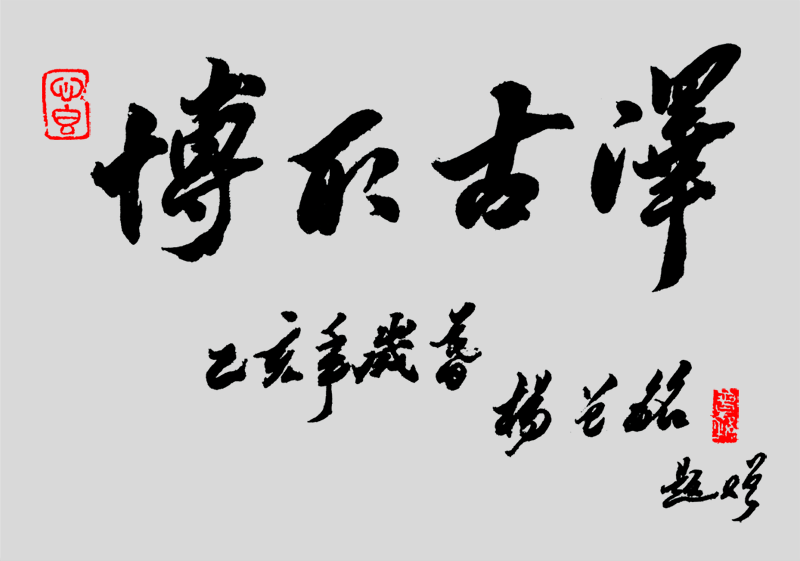 博取古澤
乙亥年歲暮
楊銘
題贈